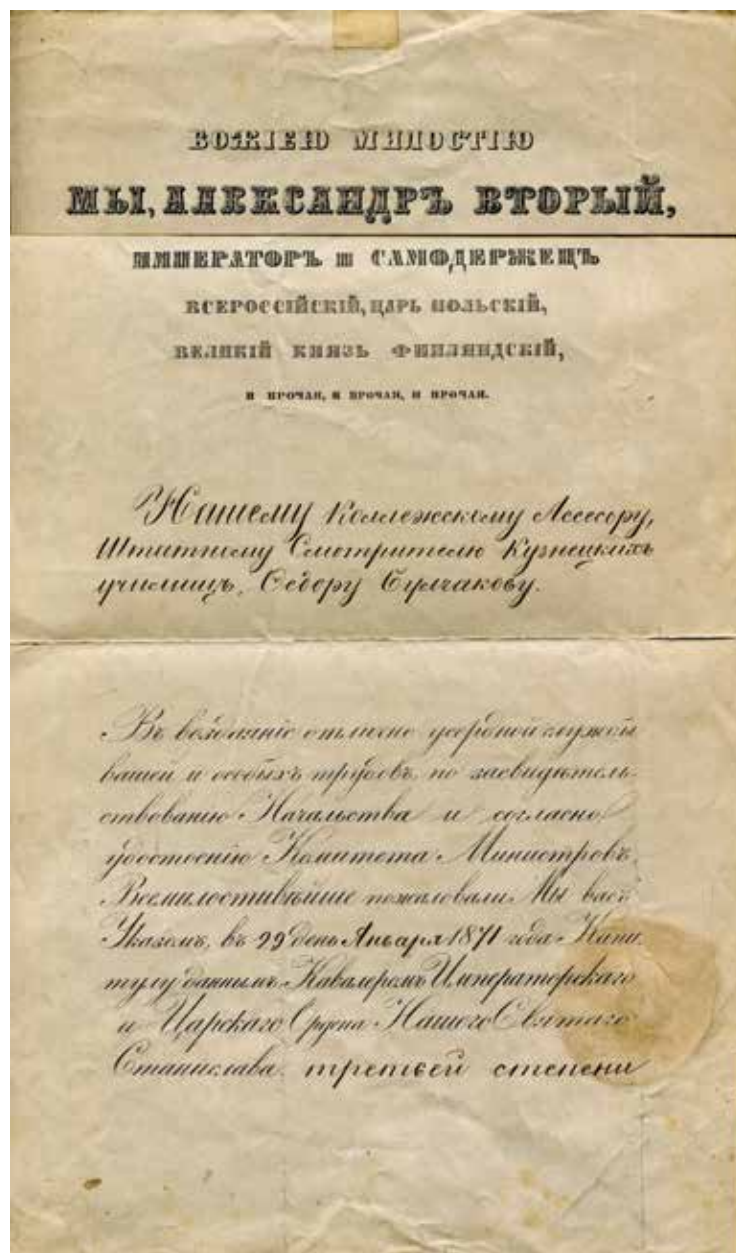 БОЖІЕЮ МИЛОСТІЮ
МЫ, АЛЕКСАНДРЪ ВТОРЫЙ,
ИМПЕРАТОРЪ и САМОДЕРЖЕЦЪ
ВСЕРОССІЙСКІЙ, ЦАРЬ ПОЛЬСКІЙ,
ВЕЛИКІЙ КНЯЗЬ ФИНЛЯНДСКІЙ,
И ПРОЧАЯ, И ПРОЧАЯ, И ПРОЧАЯ.
Нашему Коллежскому Ассесору,
Штатному Смотрителю Кузнецкихъ
училищъ, Ѳедору Булгакову.
Въ воздаяніе отлично усердной службы
вашей и особыхъ трудовъ, по засвидѣтель-
ствованію Начальства и согласно
удостоенію Комитета Министровъ,
Всемилостивѣйше пожаловали Мы васъ
Указомъ, въ 29 день Января 1871 года Капи-
тулу даннымъ, Кавалеромъ Императорскаго
и Царскаго Ордена Нашего Святаго
Станислава третьей степени